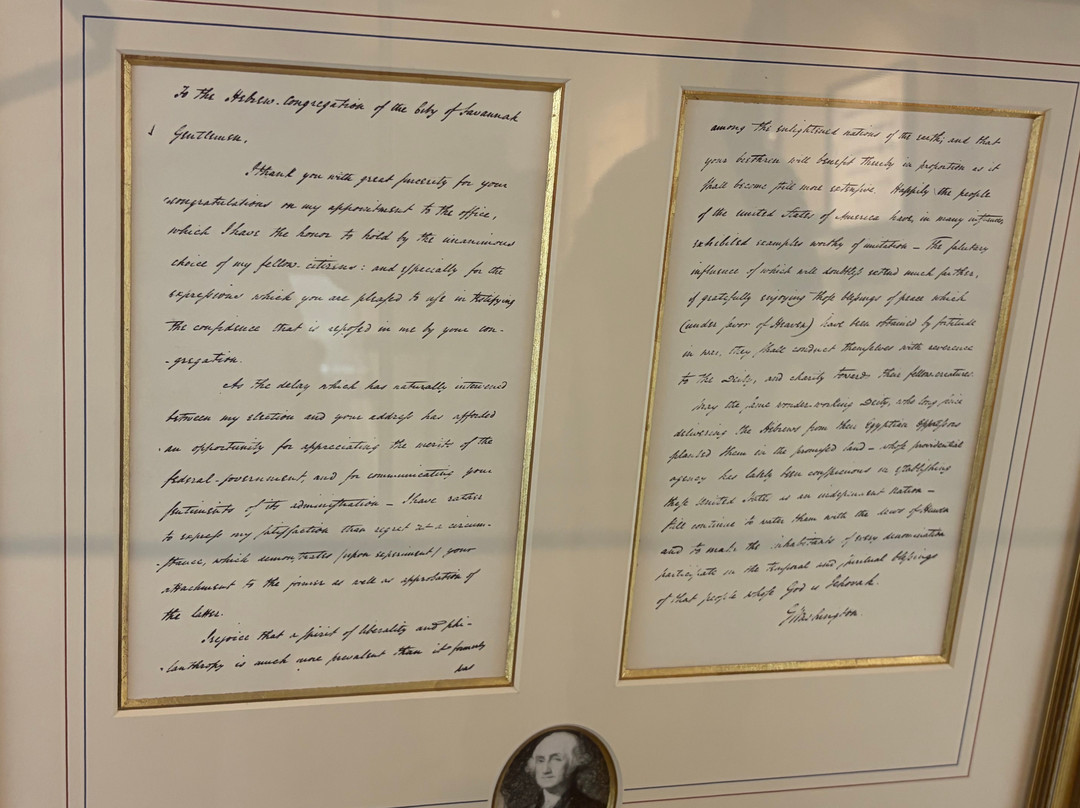 To the Hebrew-Congregation of the City of Savannah
Gentlemen,
I thank you with great sincerity for your
congratulations on my appointment to the office,
which I have the honor to hold by the unanimous
choice of my fellow-citizens: and especially for the
expressions which you are pleased to use in testifying
the confidence that is reposed in me by your con-
-gregation.
As the delay which has naturally intervened
between my election and your address has afforded
an opportunity for appreciating the merits of the
federal-government, and for communicating your
sentiments of its administration – I have rather
to express my satisfaction than regret at a circum-
-stance, which demonstrates (upon experiment) your
attachment to the former as well as approbation of
the latter.
I rejoice that a spirit of liberality and phi-
-lanthropy is much more prevalent than it formerly
was
among the enlightened nations of the earth; and that
your brethren will benefit thereby in proportion as it
shall become still more extensive. Happily the people
of the United States of America have, in many instances,
exhibited examples worthy of imitation – The salutary
influence of which will doubtless extend much farther,
if gratefully enjoying those blessings of peace which
(under favor of Heaven) have been obtained by fortitude
in war, they shall conduct themselves with reverence
to the Deity, and charity towards their fellow-creatures.
May the same wonder-working Deity, who long since
delivering the Hebrews from their Egyptian Oppressors
planted them in the promised land – whose providential
agency has lately been conspicuous in establishing
these United States as an independent nation –
still continue to water them with the dews of Heaven
and to make the inhabitants of every denomination
participate in the temporal and spiritual blessings
of that people whose God is Jehovah.
G Washington